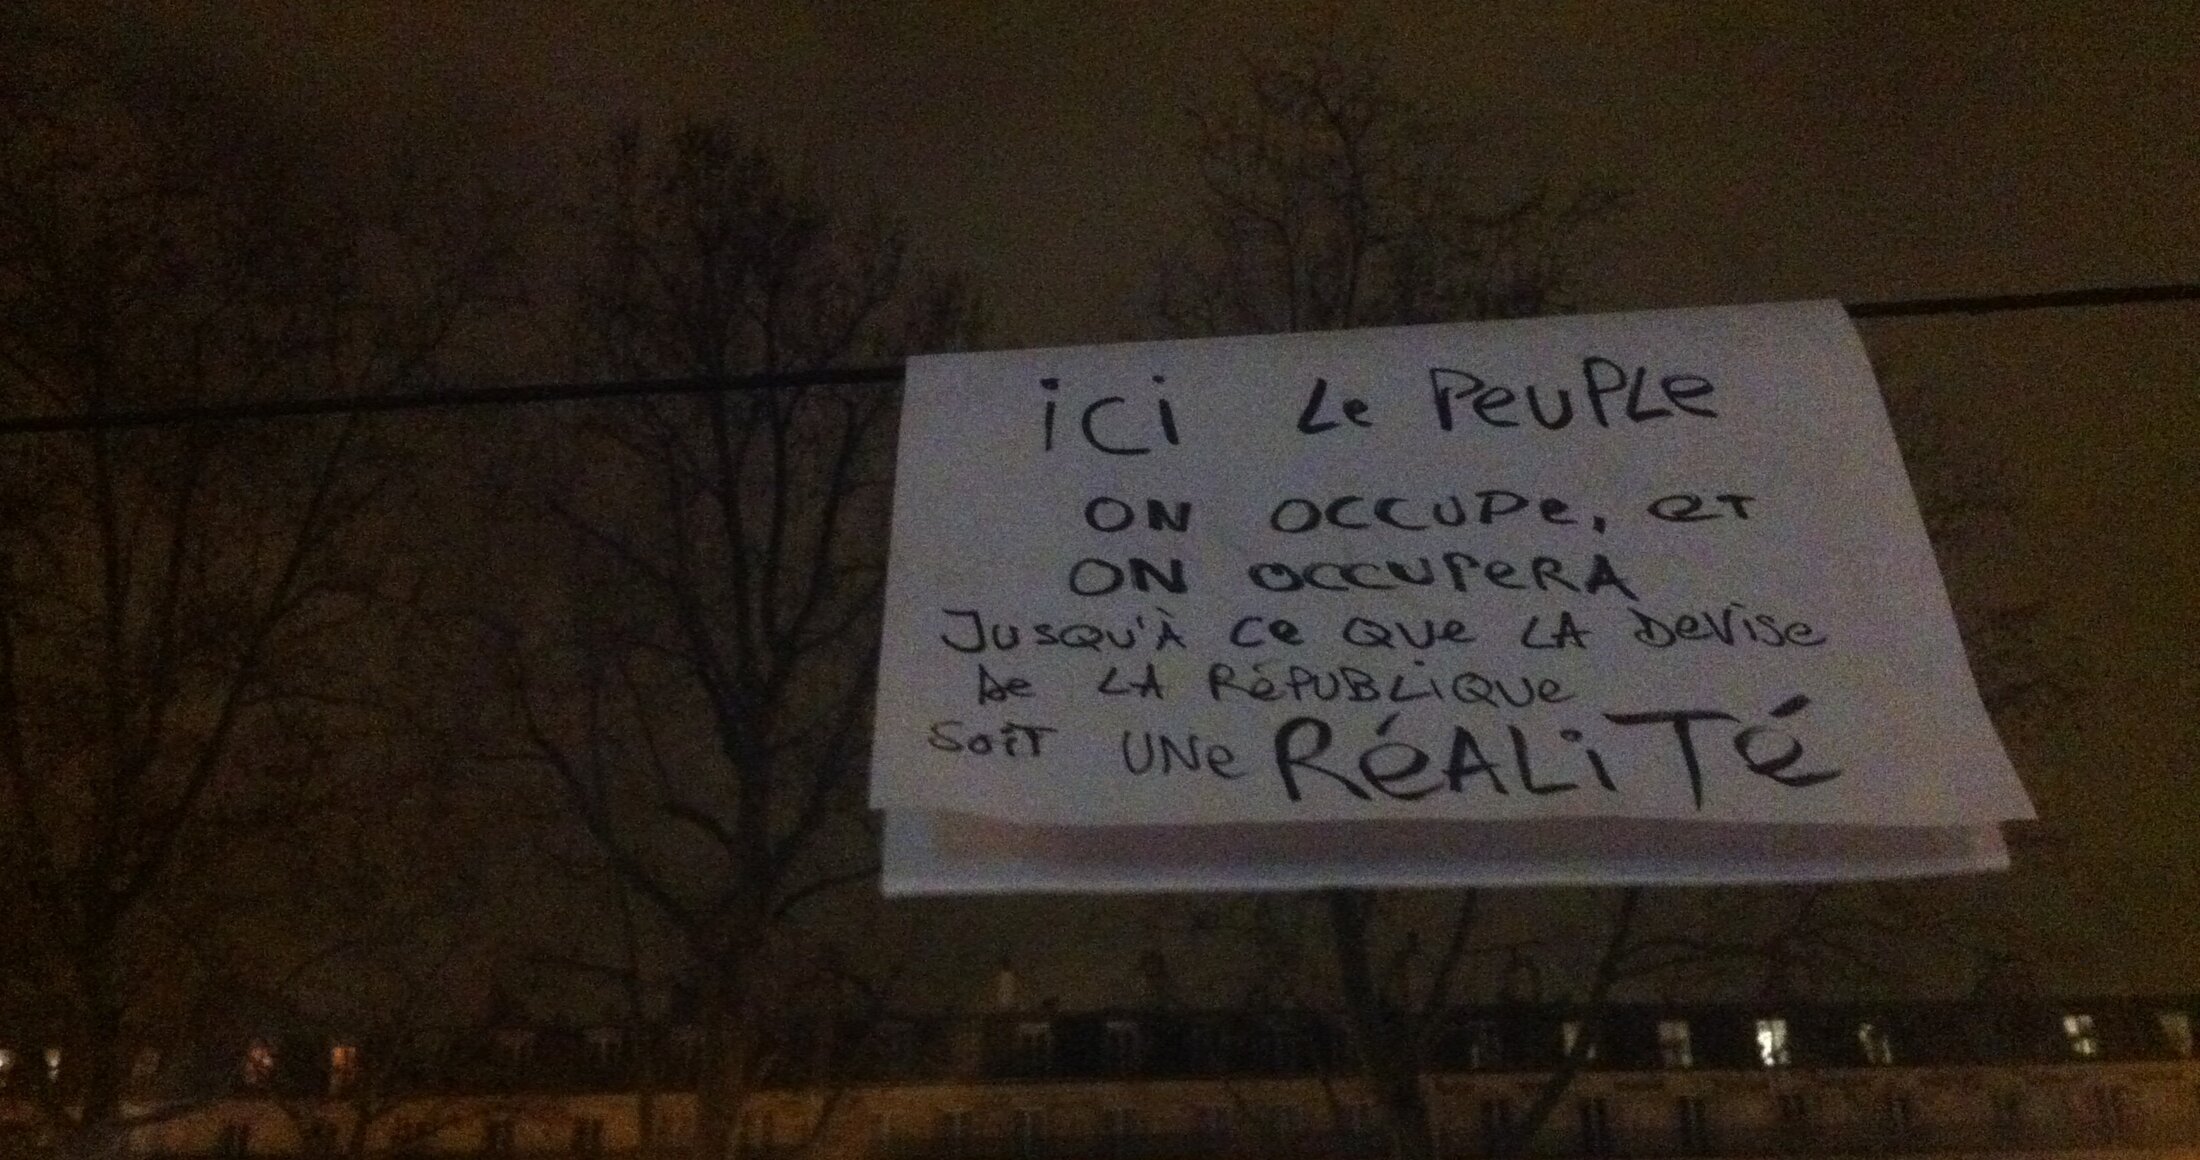 ici Le PEUPLE
ON OCCUPE, ET
ON OCCUPERA
JUSQU'À CE QUE LA DEVISE
DE LA RÉPUBLIQUE
SOIT UNE RÉALITÉ